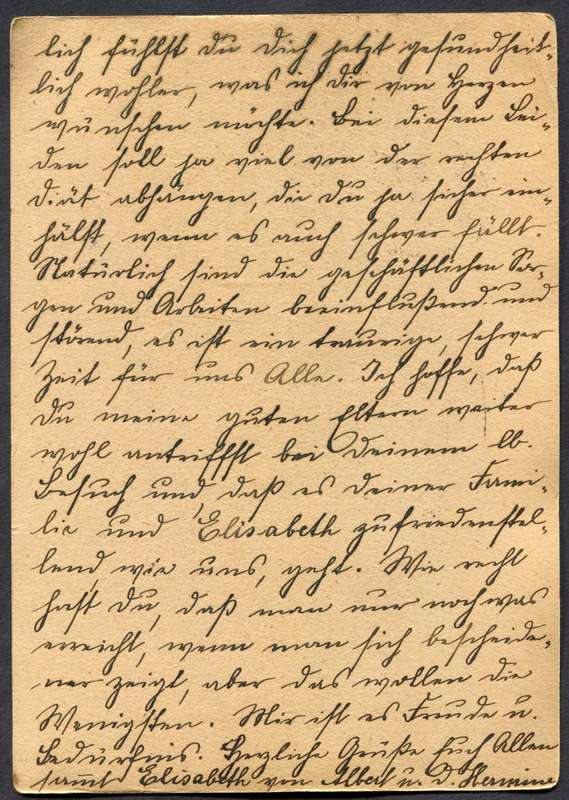 lich fühlst du dich jetzt gesundheit-
lich wohler, was ich dir von Herzen
wünschen möchte. Bei diesem Lei-
den soll ja viel von der rechten
Diät abhängen, die du ja sicher ein-
hälst, wenn es auch schwer fällt.
Natürlich sind die geschäftlichen Sor-
gen und Arbeiten beeinflußend und
störend, es ist ein traurige, schwer
Zeit für uns Alle. Ich hoffe, daß
du meine guten Eltern weiter
wohl antriffst bei Deinem lb.
Besuch und, daß es deiner Fami-
lie und Elisabeth zufriedenstel-
lend, wie uns, geht. Wie recht
hast Du, daß man nur noch was
erreicht, wenn man sich bescheide-
ner zeigt, aber das wollen die
Wenigsten. Mir ist es Freude u.
Bedürfnis. Herzliche Grüße Euch Allen
samt Elisabeth von Albert u. D. Hermine